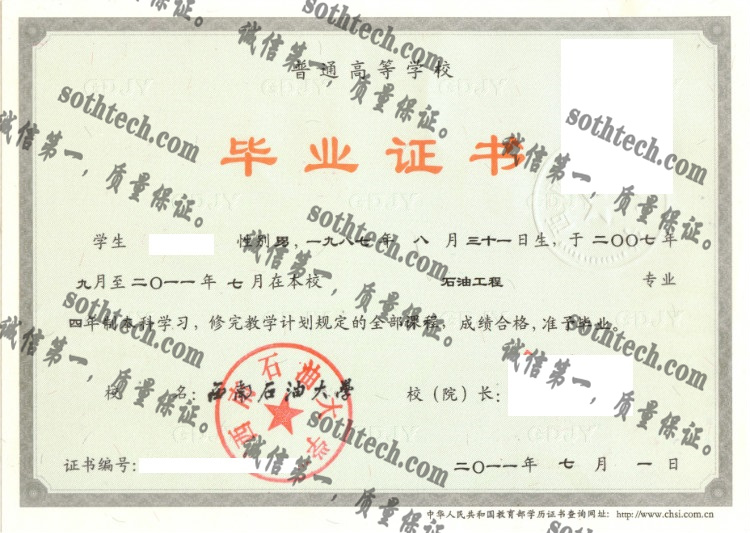 普通高等学校
毕业证书
学生 性别男，一九八七年 八 月 三十一日生，于 二〇〇七 年
九月至二〇一一年 七月在本校 石油工程 专业
四年制本科学习，修完教学计划规定的全部课程，成绩合格，准予毕业。
校 名：西南石油大学 校（院）长：
西南石油大学
证书编号： 二〇一一年 七 月 一 日
中华人民共和国教育部学历证书查询网址：http://www.chsi.com.cn
sothtech.com
诚信第一，质量保证。
sothtech.com
诚信第一，质量保证。
sothtech.com
诚信第一，质量保证。
sothtech.com
诚信第一，质量保证。
sothtech.com
诚信第一，质量保证。
sothtech.com
诚信第一，质量保证。
sothtech.com
诚信第一，质量保证。
sothtech.com
诚信第一，质量保证。
sothtech.com